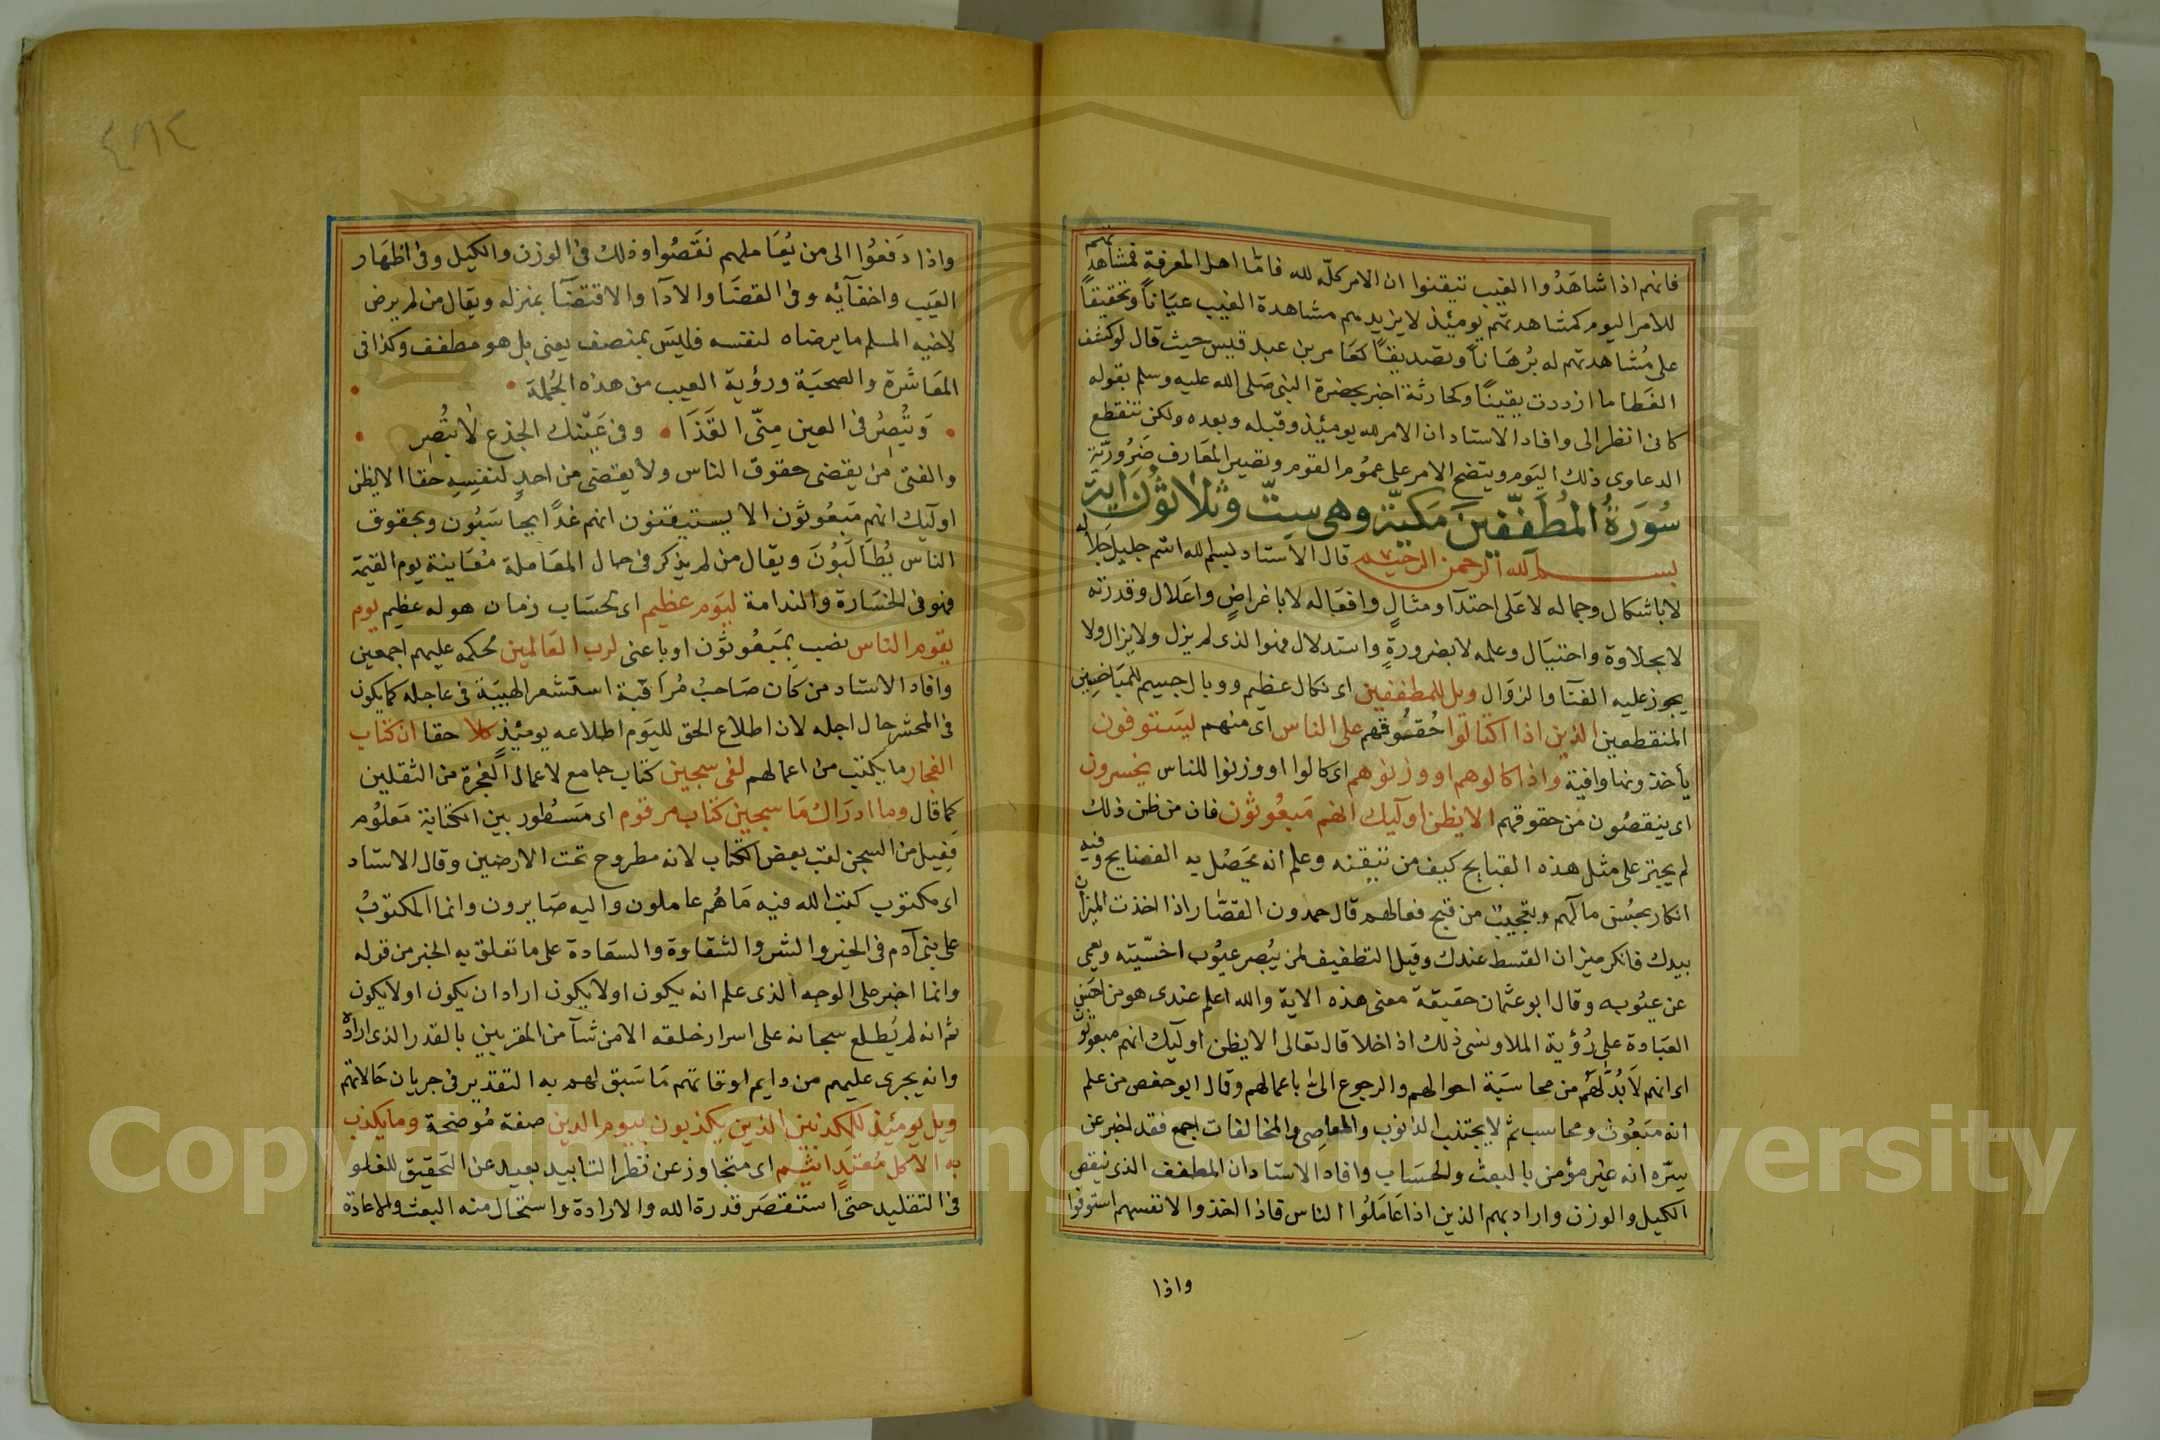 فانهم اذا شاهدوا الغيب تيقنوا ان الامر كله لله فامّا اهل المعرفة فمشاهدتهم
للامر اليوم كمشاهدتهم يومئذ لا يزيدهم مشاهدة الغيب عيانًا وتحقيقًا
على مُشاهدتهم له بُرهَانًا وتصديقًا كعامر بن عبد قيس حيث قال لو كشف
الغطا ما ازددت يقينًا وكحارثة اخبر بحضرة النبى صَلى الله عليه وسلم بقوله
كانى انظر الى وافاد الاستاد ان الامر لله يومئذ وقبله وبعده ولكن تنقطع
الدعاوى ذلك اليَوم ويتضح الامر على عمُوم القوم وتصير المعَارف ضَرُوريّة
سُورَةُ المُطَفّفينَ مَكيّة وهى سِتّ وثلاثُونَ اية
بسم الله الرحمن الرحيم قال الاستاد بسم لله اسم جليل جَلاله
لا باشكال وجماله لا عَلى احتذآ ومثالٍ وافعَاله لا باغراضٍ واعَلال وقدرته
لا بجلاوة واحتيَال وعلمه لا بضرورةٍ واستدلال فهوا لذى لم يزل ولا يزال ولا
يجوز عليه الفنآ والزوَال ويل للمطففين اى نكال عظيم ووبال جسيم
المنقطعين الذين اذا اكتالوا حُقُوقهم على الناس اى منهم ليَستوفون
يأخذونها وافية واذا كالوهم او وزنوهم اى كالوا او وزنوا للناس يخسرون
اى ينقصُون من حقوقهم الا يظن اولَيك انهم مَبعُوثون فان من ظن ذلك
لم يجتر على مثل هذه القبايح كيف من تيقنه وعلم انه يحَصُل به الفضايح وفيه
انكار بحسُن مآلهم وتعجيبٌ من قبح فعَالهم قال حمدون القصّار اذا اخذت الميزان
بيدك فاذكر ميزان القسط عندك وقيل التطفيف لمن يُبصر عيُوب اخسّيته ويعمى
عن عيُوبه وقال ابو عثمان حقيقة معنى هذه الاية والله اعلم عندى هو من احسَن
العبَادة على رُؤية الملا ونسى ذلك اذا خلا قال تعَالى الا يظن اولَيك انهم مبعوثون
اى انهم لَا بُدّ لهُم من محاسَبة احوالهم والرجوع الى باعمالهم وقال ابو حفص من علم
انه مَبعُوث ومحاسب ثم لا يجتنب الذنوب والمعاصِى والمخالفات اجمع فقد اخبر عن
سِرّه انه غير مؤمن بالبعث والحسَاب وافاد الاستاد ان المطفف الذى ينقص
الكيل والوزن واراد بهم الذين اذا عَامَلُوا الناس فاذا اخذوا لانفسهم استوفوا
واذا
واذا دَفعُوا الى من يُعَاملهم نقَصُوا وذلك فى الوزن والكيل وفى اظهَار
العَيب واخفآئه وفى القضَا والادَآ والاقتضَآ بمنزله ويقال من لم يرض
لاخيه المسلم ما يرضاه لنفسه فليسَ بمنصف يعنى بل هو مطفف وكذا فى
المعَاشرة والصحبَة ورؤية العيب من هذه الجُملة
وَتُبصِرُ فى العين مِنّى القَذَا وفى عَيْنك الجذع لا تُبْصِر
والفتى من يقضى حقوق الناس ولا يقتضى من احدٍ لنفسِهِ حقا الا يظن
اولَيك انهم مَبعُوثون الا يستيقنون انهم غدًا يحاسَبُون وبحقوق
الناس يُطَالَبُونَ ويقال من لم يذكر فى حال المعَاملة مُعَاينة يوم القيمَة
فهو فى الخسَارة والندامة ليَوم عظيم اى لحسَاب زمان هو له عظيم يوم
يقوم الناس نصب بمَبعُوثون او باعنى لرب العَالمين محكمه عليهم اجمعين
وافاد الاستاد من كان صَاحبُ مُراقبة استشعر الهيبَة فى عاجله كما يكون
فى المحشر حال اجله لان اطلاع الحق لليَوم اطلاعه يومئذٍ كلا حقا ان كتاب
الفجار ما يكتب من اعمالهم لفى سجين كتاب جامع لاعمال الفجرة من الثقلين
كما قال وما ادرَاك مَا سجين كتاب مرقوم اى مَسْطور بين الكتابة مَعلُوم
فِعيل من السجن لقب بعض الكتاب لانه مطروح تحت الارضين وقال الاستاد
اى مكتوب كتب الله فيه مَا هُم عاملون واليه صَايرون وانما المكتوبُ
على بنى آدم فى الخير والشر والشقاوة والسعَادة على ما تعلق به الخبر من قوله
وانما اخبر على الوجه الذى علم انه يكون او لا يكون اراد ان يكون او لا يكون
ثم انه لم يُطلع سبحانه على اسرار خلقه الا من شآ من المقربين بالقدر الذى اراده
وانه يجرى عليهم من دايم اوقاتهم مَا سَبق لهم به التقدير فى جريان حَالاتهم
ويل يومئذ للمكذبين الذين يكذبون بيوم الدين صفة مُوضحة وما يكذب
به الا كل مُعتَدٍ اثيم اى متجاوز عن نظر التاييد بعيد عن التحقيق للغلو
فى التقليد حتى استقصَر قدرة الله والارادة واستحال منه البعث والاعادة
٤٨٤
Copyright © King Saud University
1957